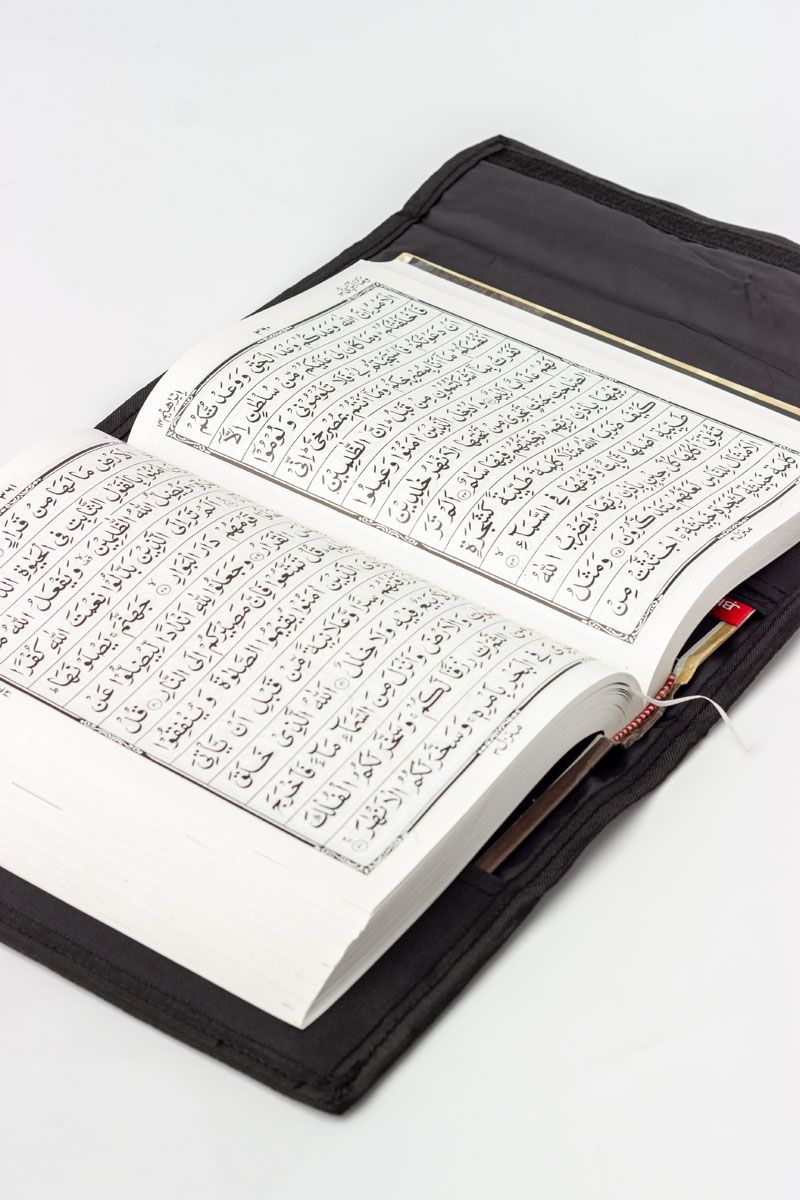 اِبْرٰهِيْم ١٤
الْاَمْرُ اِنَّ اللّٰهَ وَعَدَكُمْ وَعْدَ الْحَقِّ وَوَعَدْتُّكُمْ
فَاَخْلَفْتُكُمْ ؕ وَمَا كَانَ لِيَ عَلَيْكُمْ مِّنْ سُلْطٰنٍ اِلَّاۤ
اَنْ دَعَوْتُكُمْ فَاسْتَجَبْتُمْ لِيْ ۚ فَلَا تَلُوْمُوْنِيْ وَلُوْمُوْۤا
اَنْفُسَكُمْ ؕ مَاۤ اَنَا بِمُصْرِخِكُمْ وَمَاۤ اَنْتُمْ بِمُصْرِخِيَّ ؕ اِنِّيْ
كَفَرْتُ بِمَاۤ اَشْرَكْتُمُوْنِ مِنْ قَبْلُ ؕ اِنَّ الظّٰلِمِيْنَ
لَهُمْ عَذَابٌ اَلِيْمٌ ۞ وَاُدْخِلَ الَّذِيْنَ اٰمَنُوْا وَعَمِلُوا
الصّٰلِحٰتِ جَنّٰتٍ تَجْرِيْ مِنْ تَحْتِهَا الْاَنْهٰرُ خٰلِدِيْنَ
فِيْهَا بِاِذْنِ رَبِّهِمْ ؕ تَحِيَّتُهُمْ فِيْهَا سَلٰمٌ ۞ اَلَمْ تَرَ
كَيْفَ ضَرَبَ اللّٰهُ مَثَلًا كَلِمَةً طَيِّبَةً كَشَجَرَةٍ
طَيِّبَةٍ اَصْلُهَا ثَابِتٌ وَّفَرْعُهَا فِي السَّمَآءِ ۞
تُؤْتِيْۤ اُكُلَهَا كُلَّ حِيْنٍۢ بِاِذْنِ رَبِّهَا ؕ وَيَضْرِبُ اللّٰهُ
الْاَمْثَالَ لِلنَّاسِ لَعَلَّهُمْ يَتَذَكَّرُوْنَ ۞ وَمَثَلُ
كَلِمَةٍ خَبِيْثَةٍ كَشَجَرَةٍ خَبِيْثَةِۨ اجْتُثَّتْ مِنْ
مَا لَهَا مِنْ قَرَارٍ
بِالْقَوْلِ الثَّابِتِ فِي الْحَيٰوةِ
وَيُضِلُّ اللّٰهُ الظّٰلِمِيْنَ ۙ وَيَفْعَلُ اللّٰهُ
تَرَ اِلَى الَّذِيْنَ بَدَّلُوْا نِعْمَتَ اللّٰهِ كُفْرًا
قَوْمَهُمْ دَارَ الْبَوَارِ ۞ جَهَنَّمَ ۚ يَصْلَوْنَهَا ؕ
الْقَرَارُ ۞ وَجَعَلُوْا لِلّٰهِ اَنْدَادًا لِّيُضِلُّوْا عَنْ
قُلْ تَمَتَّعُوْا فَاِنَّ مَصِيْرَكُمْ اِلَى النَّارِ ۞ قُلْ
الَّذِيْنَ اٰمَنُوْا يُقِيْمُوا الصَّلٰوةَ وَيُنْفِقُوْا
سِرًّا وَّعَلَانِيَةً مِّنْ قَبْلِ اَنْ يَّاْتِيَ
بَيْعٌ فِيْهِ وَلَا خِلٰلٌ ۞ اَللّٰهُ الَّذِيْ خَلَقَ
وَالْاَرْضَ وَاَنْزَلَ مِنَ السَّمَآءِ مَآءً فَاَخْرَجَ
الثَّمَرٰتِ رِزْقًا لَّكُمْ ۚ وَسَخَّرَ لَكُمُ الْفُلْكَ
فِي الْبَحْرِ بِاَمْرِهٖ ۚ وَسَخَّرَ لَكُمُ الْاَنْهٰرَ ۞